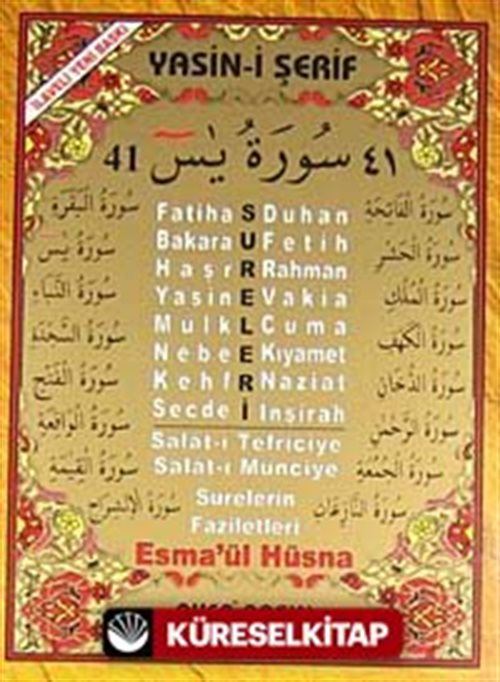 İLAVELİ YENİ BASKI
YASİN-İ ŞERİF
41 سُورَةُ يٰسٓ ٤١
Fatiha S Duhan
Bakara U Fetih
Haşr R Rahman
Yasin E Vakia
Mülk L Cuma
Nebe E Kıyamet
Kehf R Naziat
Secde İ İnşirah
Salat-ı Tefriciye
Salat-ı Münciye
Surelerin
Faziletleri
Esma'ül Hüsna
سُورَةُ الْبَقَرَةِ
سُورَةُ يٰسٓ
سُورَةُ النَّبَاءِ
سُورَةُ السَّجْدَةِ
سُورَةُ الْفَتْحِ
سُورَةُ الْوَاقِعَةِ
سُورَةُ الْقِيٰمَةِ
سُورَةُ الْاِنْشِرَاحِ
سُورَةُ الْفَاتِحَةِ
سُورَةُ الْحَشْرِ
سُورَةُ الْمُلْكِ
سُورَةُ الْكَهْفِ
سُورَةُ الدُّخَانِ
سُورَةُ الرَّحْمٰنِ
سُورَةُ الْجُمُعَةِ
سُورَةُ النَّازِعَاتِ
KÜRESELKİTAP